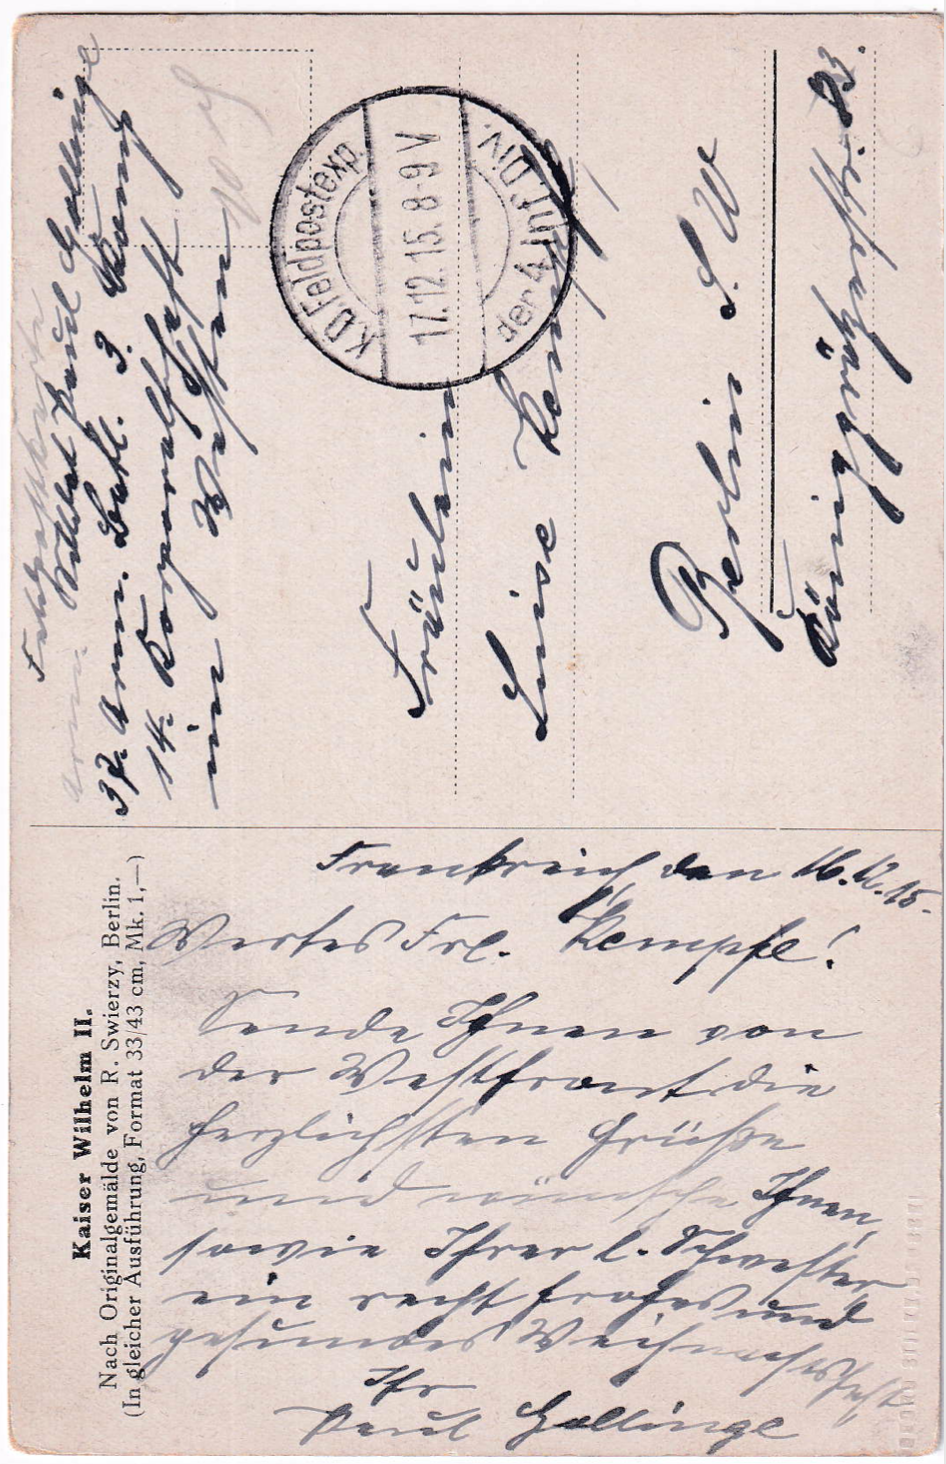 Kaiser Wilhelm II.
Nach Originalgemälde von R. Swierzy, Berlin.
(In gleicher Ausführung, Format 33/43 cm, Mk. 1,—)
Frankreich den 16.12.15.
Wertes Frl. Kempfe!
Sende Ihnen von
der Westfront die
herzlichsten Grüße
und wünsche Ihnen,
sowie Ihrer l. Schwester
ein recht frohes und
gesundes Weihnachtsfest
Ihr
Paul Gollinge
Feldpostkarte
Paul Gollinge
37. Arm. Batl. 3. Komp.
14. Korporalschaft
im Westen
K.D. Feldpostexp.
17.12.15. 8-9 V.
der 4. Inf. Div.
Fräulein
Luise Kempfe
Berlin S.W
Königgrätzerstr.